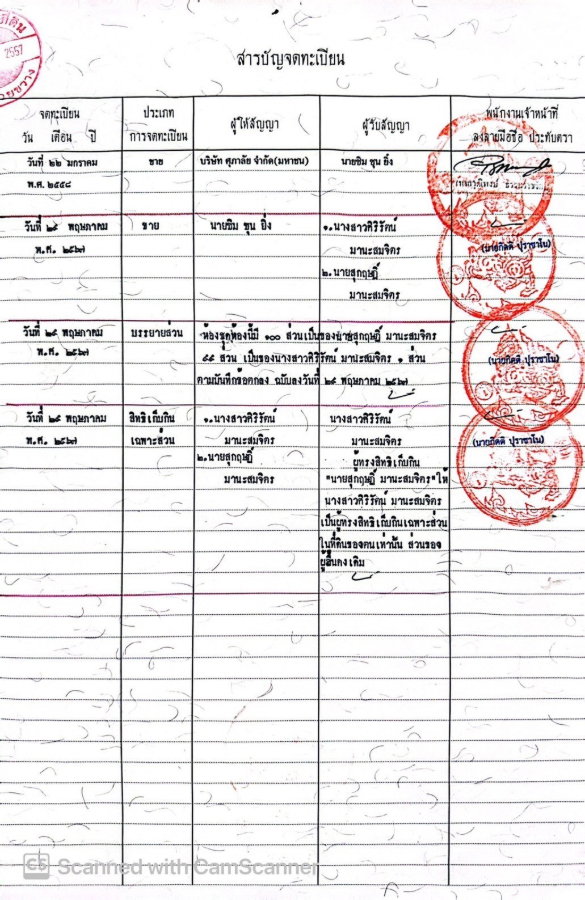 2557
สารบัญจดทะเบียน
จดทะเบียน
วัน เดือน ปี
ประเภท
การจดทะเบียน
ผู้ให้สัญญา
ผู้รับสัญญา
พนักงานเจ้าหน้าที่
ลงลายมือชื่อ ประทับตรา
วันที่ ๒๒ มกราคม
พ.ศ. ๒๕๕๘
ขาย
บริษัท ศุภาลัย จำกัด(มหาชน)
นายซิม ซุน ยิ่ง
วันที่ ๒๕ พฤษภาคม
พ.ศ. ๒๕๖๗
ขาย
นายซิม ซุน ยิ่ง
๑.นางสาวศิริรัตน์
มานะสมจิตร
๒.นายสุกฤษฎิ์
มานะสมจิตร
(นายกิตติ ปุราชาโน)
วันที่ ๒๕ พฤษภาคม
พ.ศ. ๒๕๖๗
บรรยายส่วน
ห้องชุดห้องนี้มี ๑๐๐ ส่วนเป็นของนายสุกฤษฎิ์ มานะสมจิตร
๙๙ ส่วน เป็นของนางสาวศิริรัตน์ มานะสมจิตร ๑ ส่วน
ตามบันทึกข้อตกลง ฉบับลงวันที่ ๒๕ พฤษภาคม ๒๕๖๗
(นายกิตติ ปุราชาโน)
วันที่ ๒๕ พฤษภาคม
พ.ศ. ๒๕๖๗
สิทธิเก็บกิน
เฉพาะส่วน
๑.นางสาวศิริรัตน์
มานะสมจิตร
๒.นายสุกฤษฎิ์
มานะสมจิตร
นางสาวศิริรัตน์
มานะสมจิตร
ผู้ทรงสิทธิเก็บกิน
"นายสุกฤษฎิ์ มานะสมจิตร"ให้
นางสาวศิริรัตน์ มานะสมจิตร
เป็นผู้ทรงสิทธิเก็บกินเฉพาะส่วน
ในที่ดินของตนเท่านั้น ส่วนของ
ผู้อื่นคงเดิม
(นายกิตติ ปุราชาโน)
CS Scanned with CamScanner